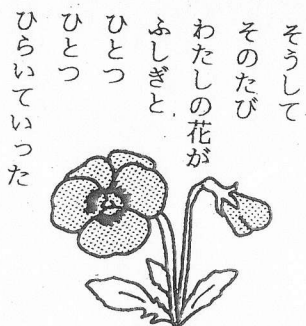 そうして
そのたび
わたしの花が
ふしぎと
ひとつ
ひとつ
ひらいていった